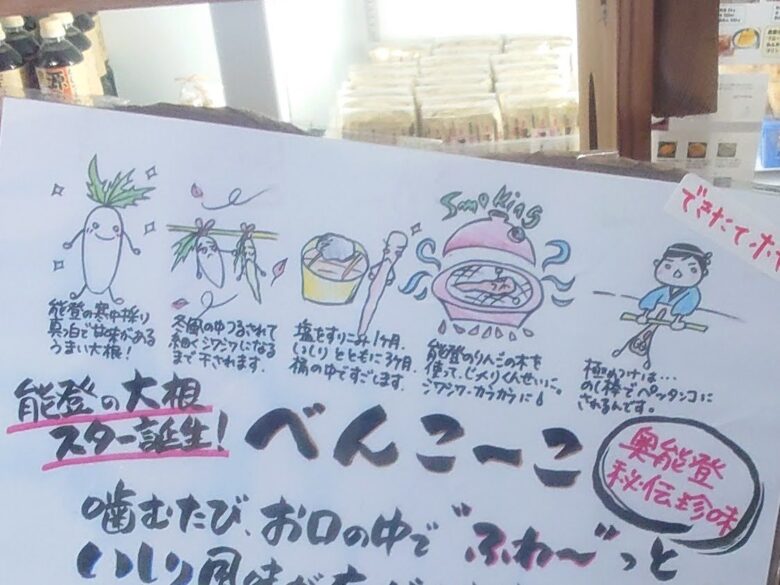 Smoking
できたてホ
能登の寒中採り
真っ白で甘味がある
うまい大根!
冬風の中つるされて
細くシワシワになる
まで干されます.
塩をすりこみ1ヶ月.
いしりとともに3ヶ月.
桶の中ですごします.
能登のりんごの木を
使って、じメりくんせいに。
シワシワ・カラカラに
極めつけは…
のし棒でペッタンコに
されるんです。
能登の大根
スター誕生!
べんこ〜こ
奥能登
秘伝珍味
噛むたび、お口の中で"ふわ〜"っと
いしり風味が